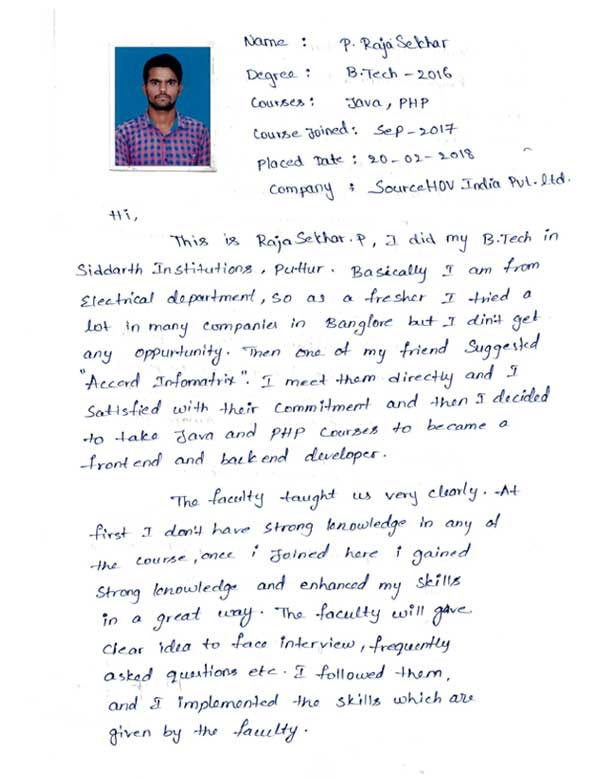 Name : P. Raja Sekhar
Degree : B.Tech - 2016
Courses : Java, PHP
Course Joined : Sep - 2017
Placed Date : 20-02-2018
Company : SourceHOV India Pvt. ltd.
Hi,
This is Raja Sekhar. P, I did my B.Tech in
Siddarth Institutions, Puttur. Basically I am from
Electrical department, so as a fresher I tried a
lot in many companies in Banglore but I din't get
any oppurtunity. Then one of my friend Suggested
"Accord Infomatrix". I meet them directly and I
Satisfied with their Commitment and then I decided
to take Java and PHP Courses to became a
front end and back end developer.
The faculty taught us very clearly. At
first I don't have strong knowledge in any of
the course, once i Joined here i gained
Strong knowledge and enhanced my skills
in a great way. The faculty will gave
Clear idea to face interview, frequently
asked questions etc. I followed them,
and I implemented the skills which are
given by the faculty.